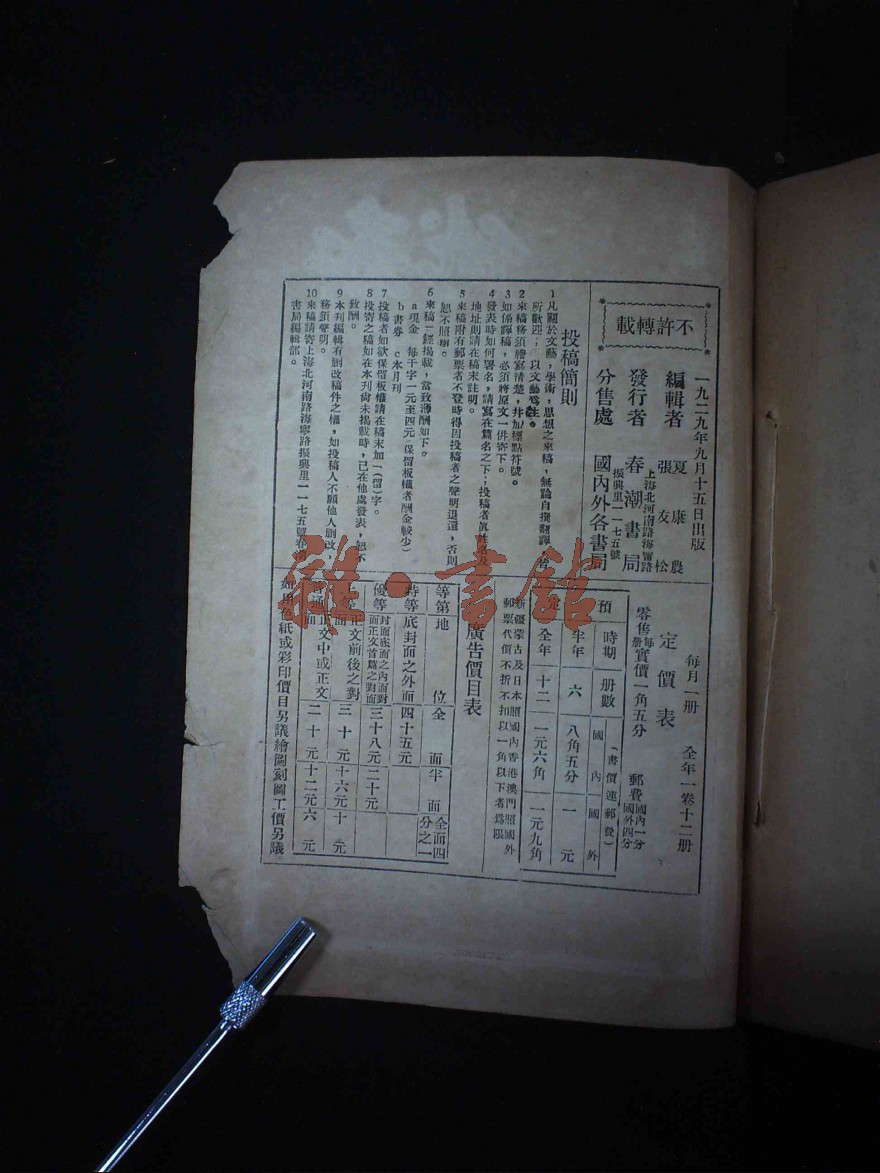 不許轉載
一九二九年九月十五日出版
編輯者 夏康農 張友松
發行者 春潮書局
上海北河南路海甯路
振興里一一七五號
分售處 國內外各書局
投稿簡則
1 凡關於文藝,學術,思想之來稿,無論自撰翻譯,皆
所歡迎;以文藝爲主。
2 來稿務須繕寫清楚,幷加標點符號。
3 如係譯稿,必須將原文一併寄下。
4 發表時如何署名,請寫在篇名之下;投稿者眞姓名及
地址則請在稿末註明。
5 來稿附有郵票者不登時得因投稿者之聲明退還,否則
恕不照辦。
6 來稿一經揭載,當致薄酬如下。
a 現金 每千字一元至四元(保留板權者酬金較少)
b 書券 c 本月刊
7 投稿者如欲保留板權請在稿末加「(留)字。
8 投寄之稿如在本刊尙未揭載時,已在他處發表,恕不
致酬。
9 本刊編輯有删改稿件之權,如投稿人不願他人删改,
務須聲明。
10 來稿請寄上海北河南路海寧路振興里一一七五號春潮
書局編輯部。
每月一册 全年一卷十二册
定價表
零售每册實價一角五分 郵費國內一分國外四分
預定
時期 册數 (書價連郵費) 國內 國外
半年 六 八角五分 一元
全年 十二 一元六角 一元九角
新疆蒙古及日本照國內香港澳門照國外
郵票代價不折不扣以一角以下者爲限
廣告價目表
等第 地位 全面 半面 全面四分之一
特等 底封面之外面 四十五元
優等 封面底面之內面對面正文首篇之對面 三十八元 二十元
上等 正文前後之對面 三十元 十六元 十元
普通 正文中或正文 二十元 十二元 六元
如用色紙或彩印價目另議繪圖刻圖工價另議
雜·書館